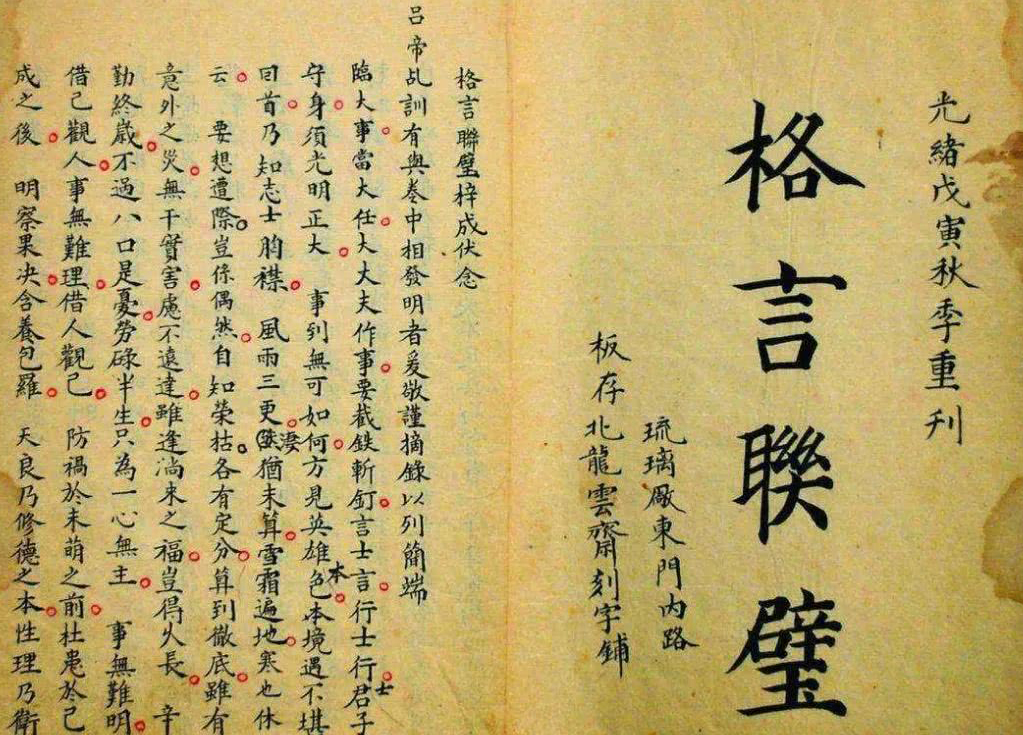 光緒戊寅秋季重刊
格言聯璧
琉璃厰東門内路
板存北龍雲齋刻字鋪
格言聯璧梓成伏念
呂帝乩訓有與卷中相發明者爰敬謹摘錄以列簡端
臨大事當大任大大夫作事要截鉄斬釘言士言行士行君子
士
守身須光明正大 事到無可如何方見英雄色本境遇不堪
本
回首乃知志士胸襟 風雨三更猶未算雪霜遍地寒也休
凄
云 要想遭際豈係偶然自知榮枯各有定分算到徹底雖有
意外之災無干實害慮不遠達雖逢淌来之福豈得久長 辛
勤終歲不過八口是憂勞碌半生只為一心無主 事無難明
借己觀人事無難理借人觀己 防禍於未萌之前杜患於已
成之後 明察果决含養包羅 天良乃修德之本性理乃衛